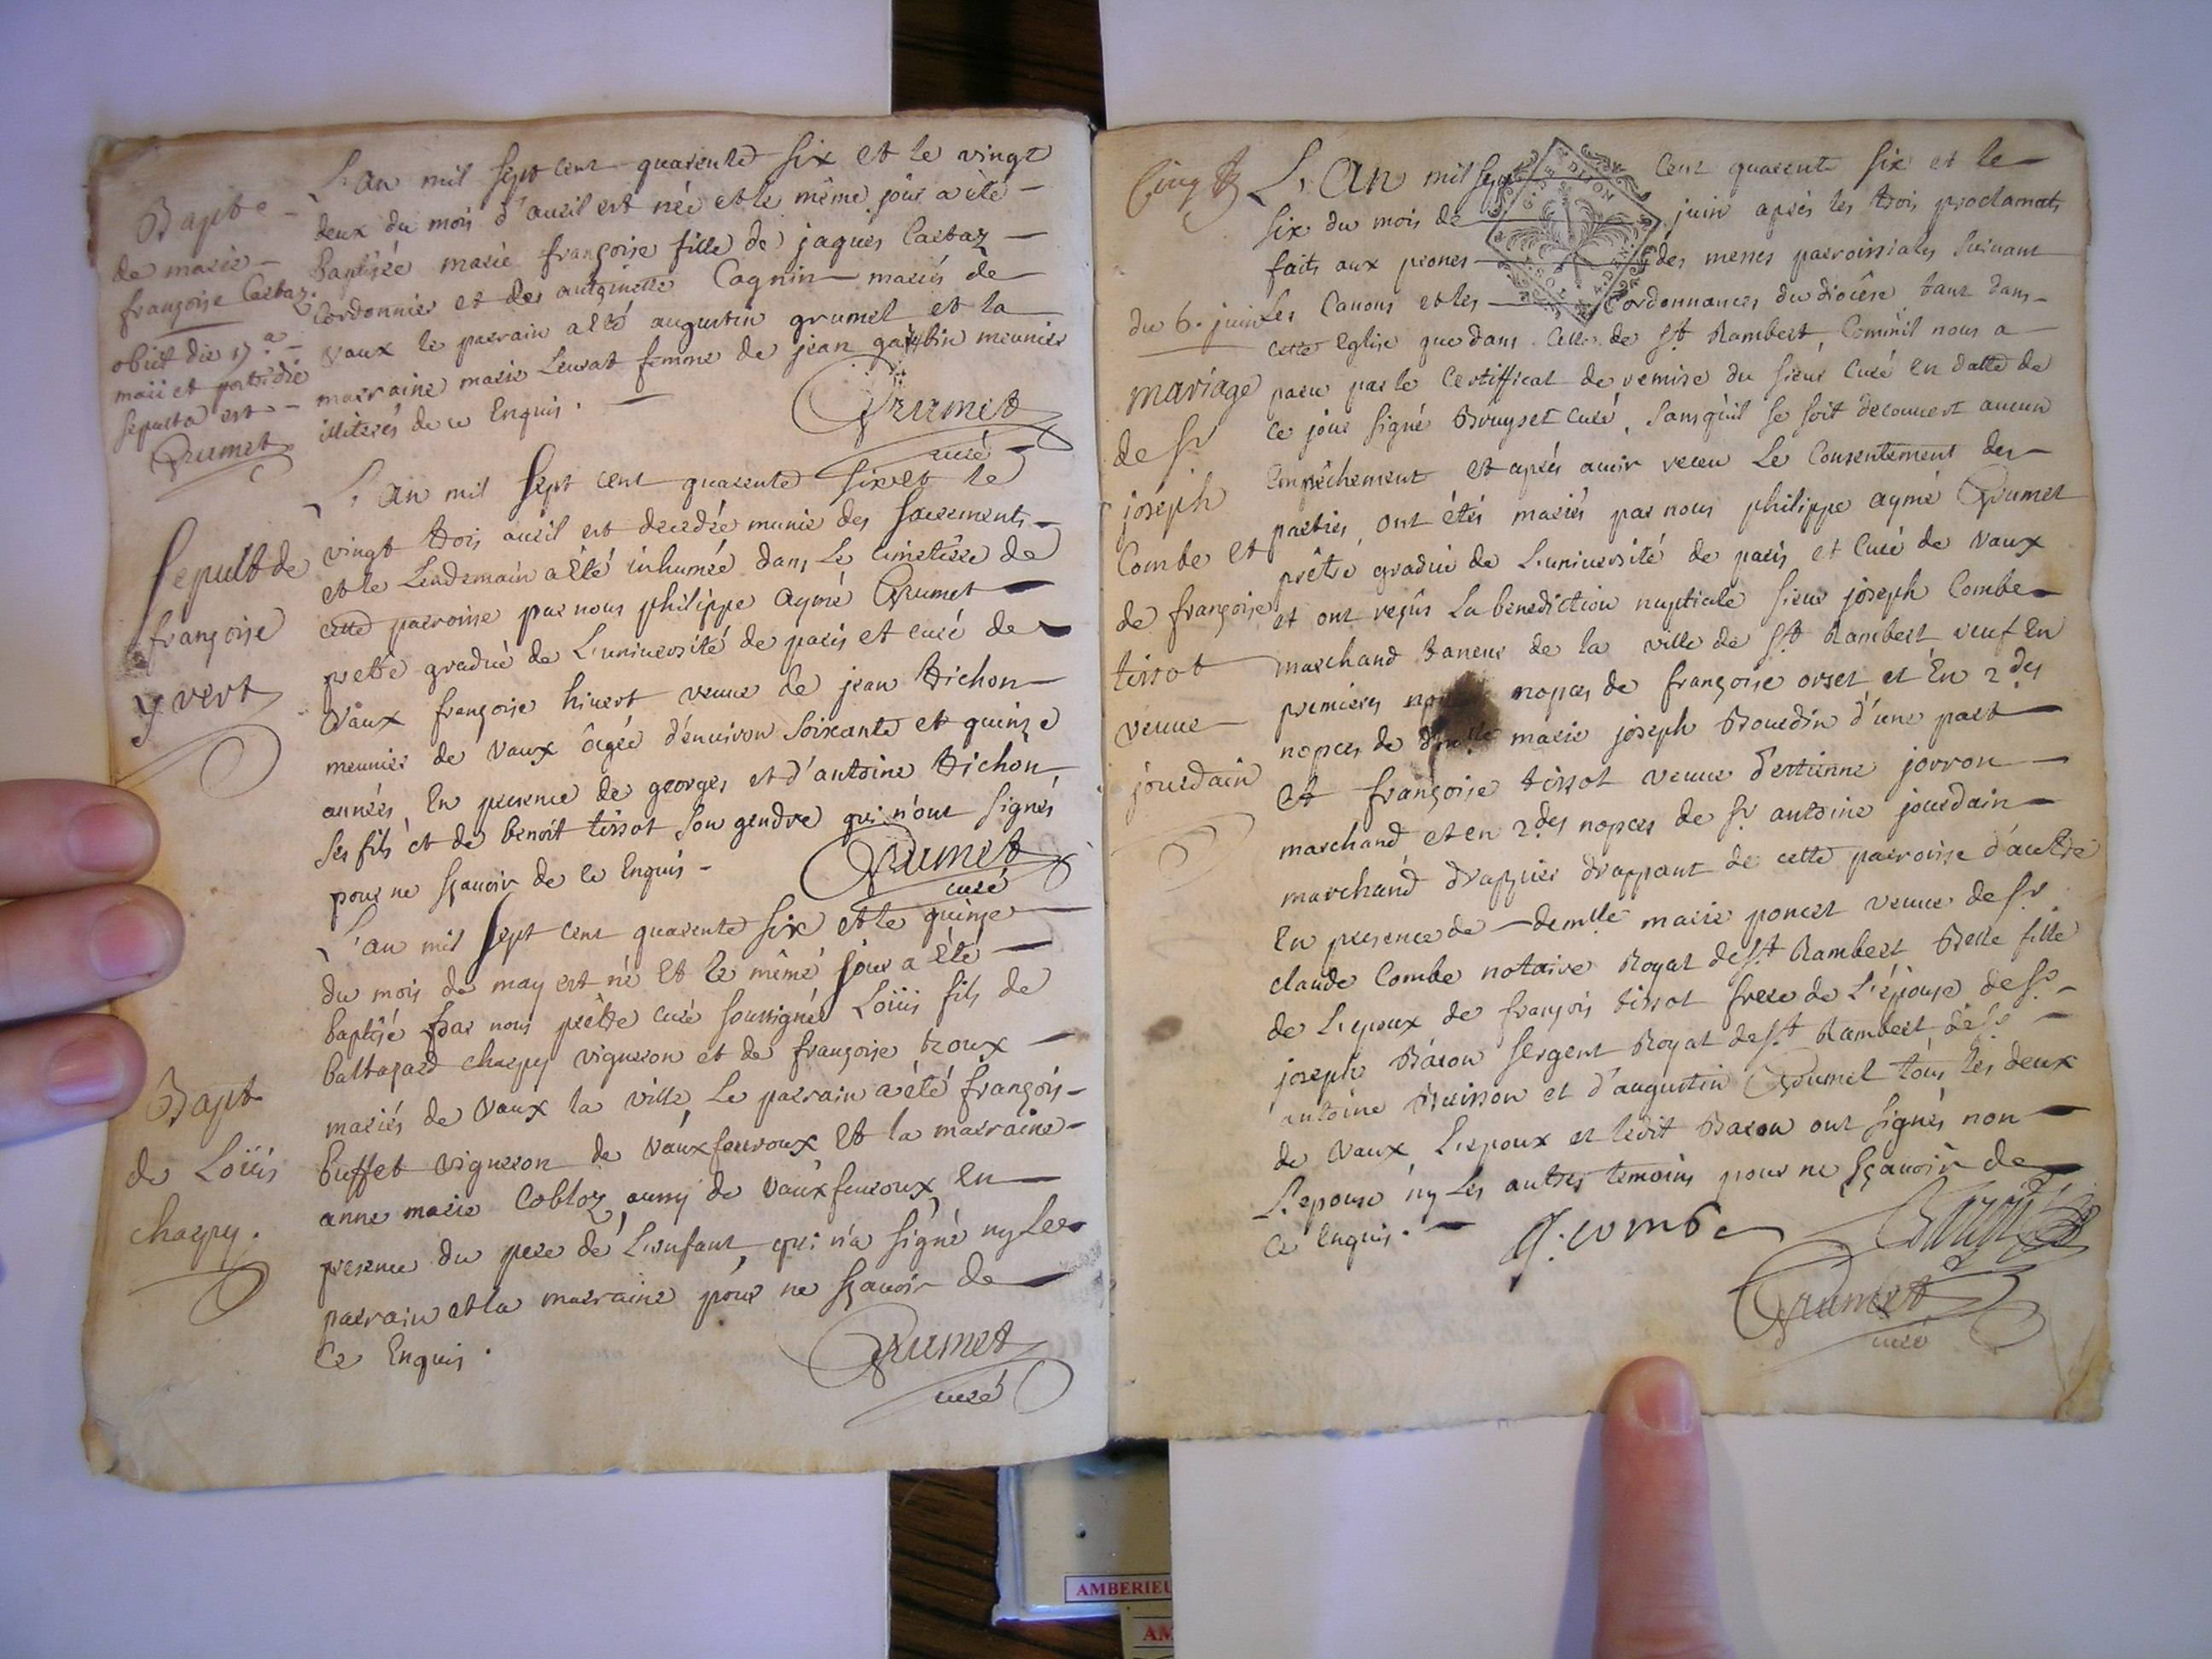 Bapt.e
de marie
françoise Carbaz.
obiit die 17.a
maii et postridie
sepulta est
Grumet
L'an mil sept cent quarente six et le vingt
deux du mois d'avril est née et le même jour a été
baptisée marie françoise fille de jaques Carbaz
Cordonnier et des antoinette Cagnin mariés de
vaux le parrain a été augustin grumel et la
marraine marie Leurat femme de jean gambin meunier
illiterés de ce Enquis.
Grumet
curé
Sepult de
françoise
yvert
L'an mil sept cent quarente six et le
vingt trois avril est decedée munie des sacrements
et le Lendemain a été inhumée dans Le cimetière de
cette parroisse par nous philippe aymé Grumet
prette gradué de L'université de paris et curé de
vaux françoise hivert veuve de jean tichon
meunier de vaux âgée d'environ soixante et quinze
années, En presence de georges et d'antoine tichon
ses fils et de benoit tissot son gendre qui n'ont signés
pour ne sçavoir de ce Enquis
Grumet
curé
Bapt
de Loüis
charpy.
L'an mil sept cent quarente six et le quinze
du mois de may est né Et le même jour a Eté
baptisé par nous prêtre curé soussigné Loüis fils de
baltazard charpy vigneron et de françoise troux
mariés de vaux la ville Le parrain a été françois
buffet vigneron de vauxfevroux Et la marraine
anne marie Cobloz aussy de vauxfevroux, En
presence du pere de L'enfant qui n'a signé ny Le
parrain et la marraine pour ne sçavoir de
Ce Enquis.
Grumet
curé
Cinq
du 6. juin
mariage
de Sr
joseph
Combe et
de françoise
tissot
veuve
jourdain
L'An mil sept cent quarente six et le
six du mois de juin après les trois proclamats
faits aux prones des messes parroissiales suivant
Les Canons et les ordonnances du diocêse tant dans
cette Eglise que dans celle de St Rambert, Comm'il nous a
paru par le Certifficat de remise du sieur Curé en datte de
ce jour signé Bruyset curé, sans qu'il se soit decouvert aucun
Empêchement et après avoir receu Le Consentement des
parties, ont étés mariés par nous philippe aymé Grumet
prêtre gradué de L'université de paris et Curé de vaux
et ont reçûs La benediction nuptiale sieur joseph Combe
marchand taneur de la ville de St Rambert veuf En
premieres nopces de françoise orset et En 2.des
nopces de marie joseph Bourdin d'une part
et françoise tissot veuve d'estienne jorron
marchand et en 2.des nopces de Sr antoine jourdain
marchand drapier drappant de cette parroisse d'autre
En presence de demlle marie poncet veuve de Sr
claude Combe notaire Royal de St Rambert Belle fille
de L'epoux de françois tissot frere de L'épouse de Sr
joseph Baron sergent Royal de St Rambert de Sr
antoine Buisson et d'augustin Grumel tous les deux
de vaux L'epoux et ledit Baron ont signés non
L'epouse ny Les autres temoins pour ne sçavoir de
Ce Enquis.
J. combe
Baron
Grumet
curé
AMBERIEU
AM